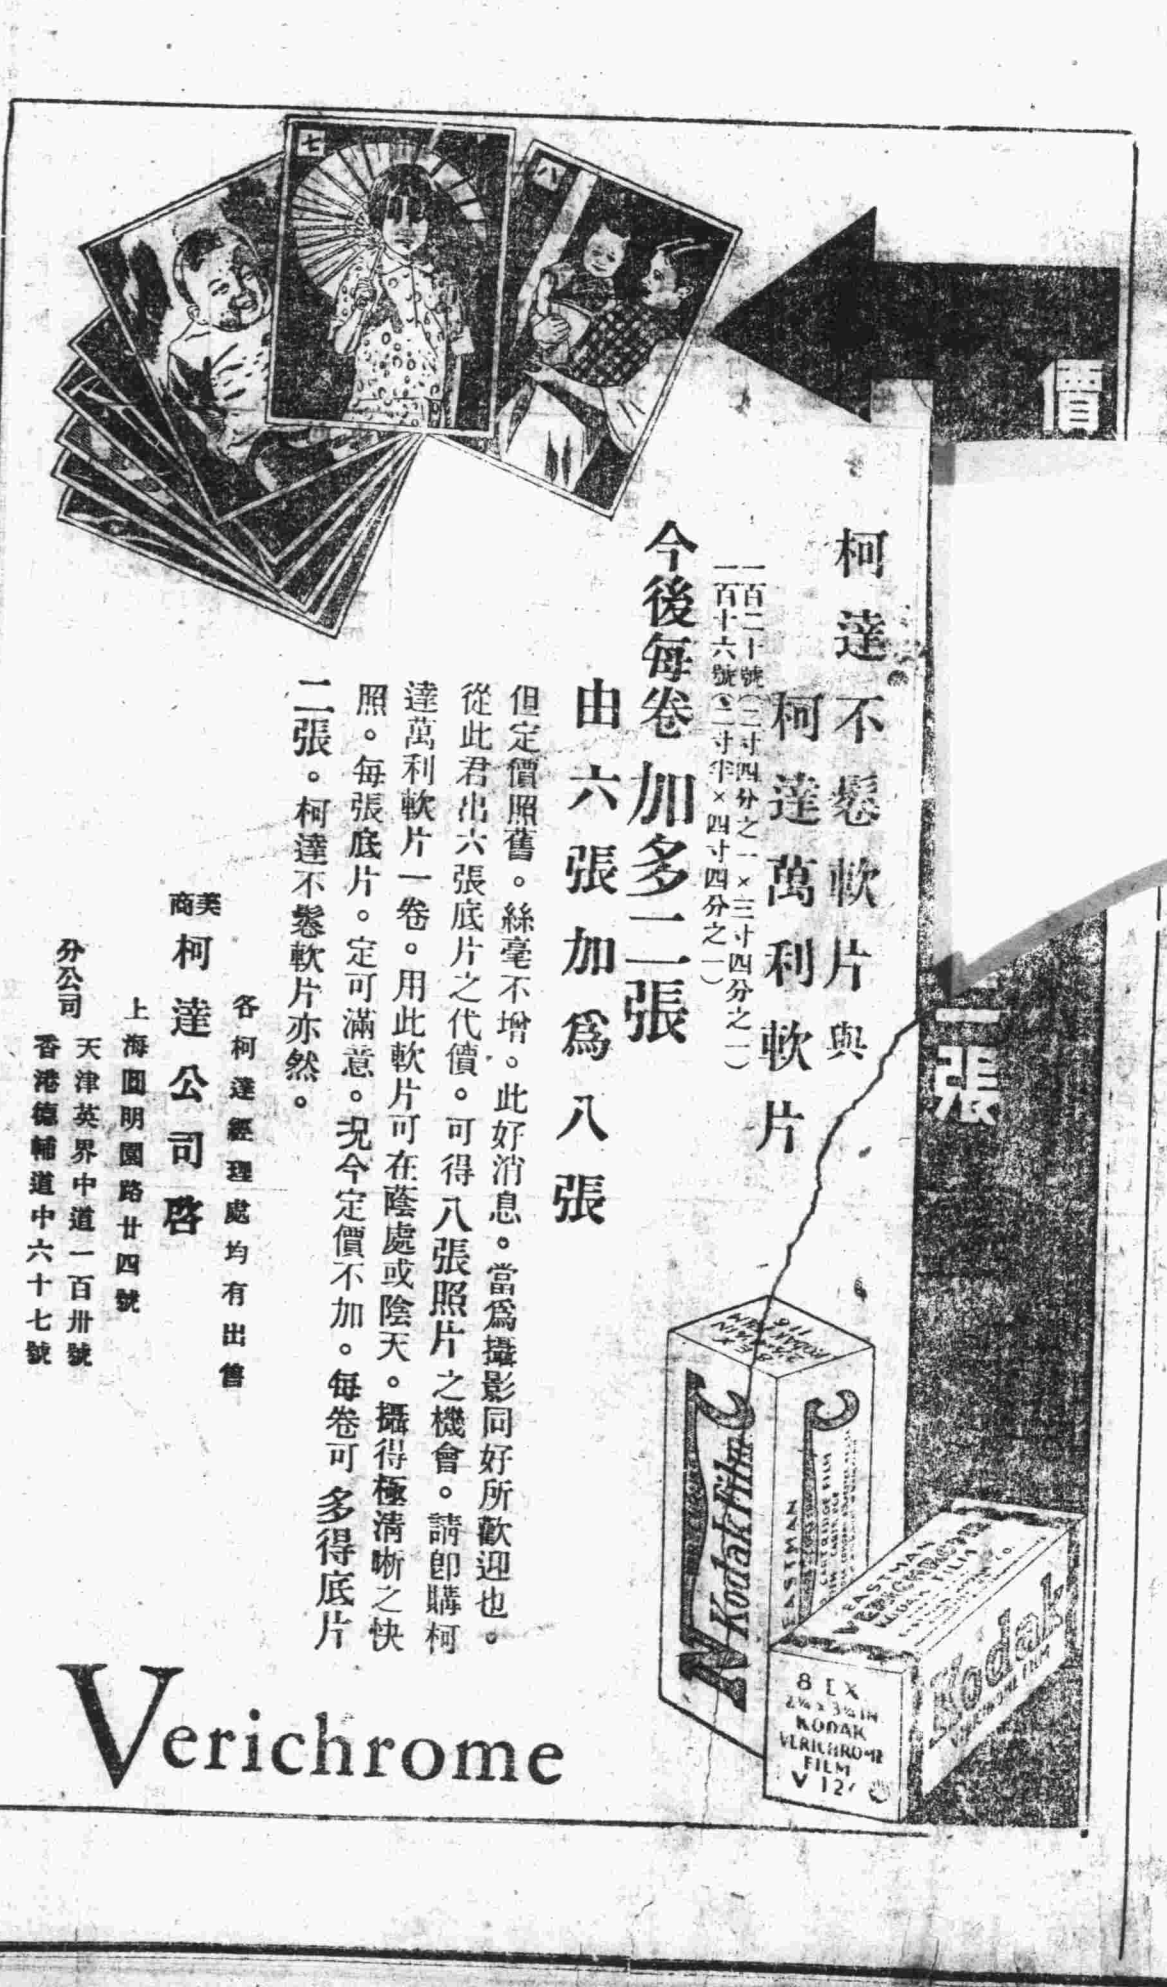 價
二張
柯達不鬆軟片與
柯達萬利軟片
一百二十號(二寸四分之一×三寸四分之一)
一百十六號(二寸半×四寸四分之一)
今後每卷加多二張
由六張加爲八張
但定價照舊。絲毫不增。此好消息。當爲攝影同好所歡迎也。
從此君出六張底片之代價。可得八張照片之機會。請卽購柯
達萬利軟片一卷。用此軟片可在蔭處或陰天。攝得極淸晰之快
照。每張底片。定可滿意。況今定價不加。每卷可多得底片
二張。柯達不鬆軟片亦然。
各柯達經理處均有出售
美商
柯達公司啓
上海圓明園路廿四號
分公司
天津英界中道一百卅號
香港德輔道中六十七號
七
八
N
C
Kodak Film
116
EASTMAN
EASTMAN
VERICHROME
KODAK FILM
Kodak
8 EX.
2¼ x 3¼ IN.
KODAK
VERICHROME
FILM
V 12
Verichrome